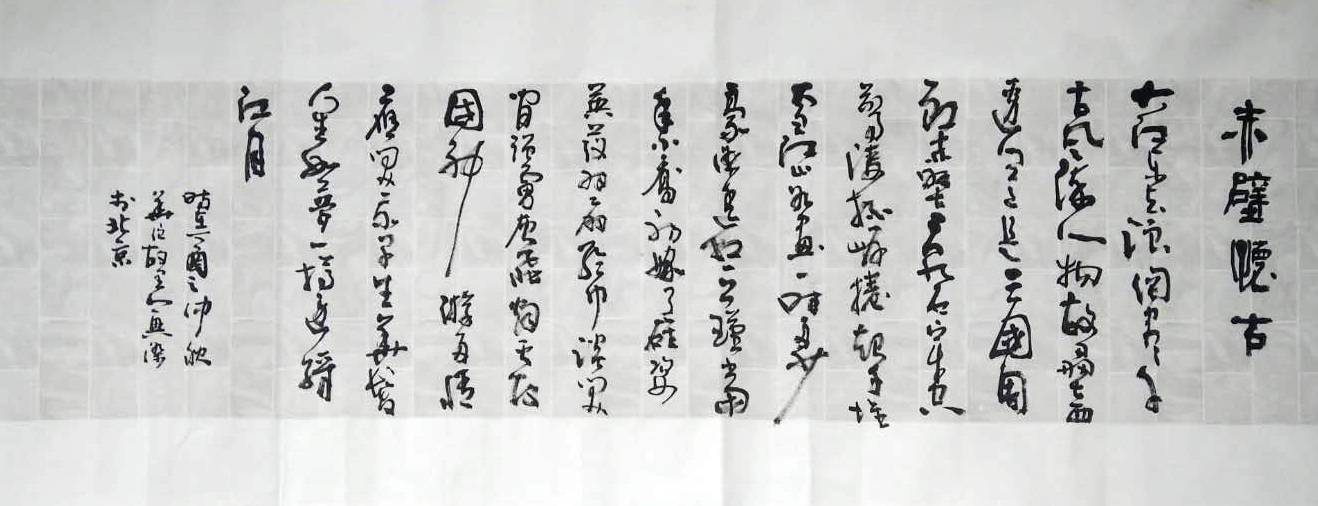 赤壁懷古
大江東去浪淘盡千
古風流人物故壘西
邊人道是三國周
郎赤壁亂石穿空
驚濤拍岸捲起千堆
雪江山如畫一時多少
豪傑遙想公瑾當
年小喬初嫁了雄姿
英發羽扇綸巾談笑
間檣虜灰飛煙滅故
國神遊多情
應笑我早生華髮
人生如夢一樽還酹
江月
時在之仲秋
無染
於北京